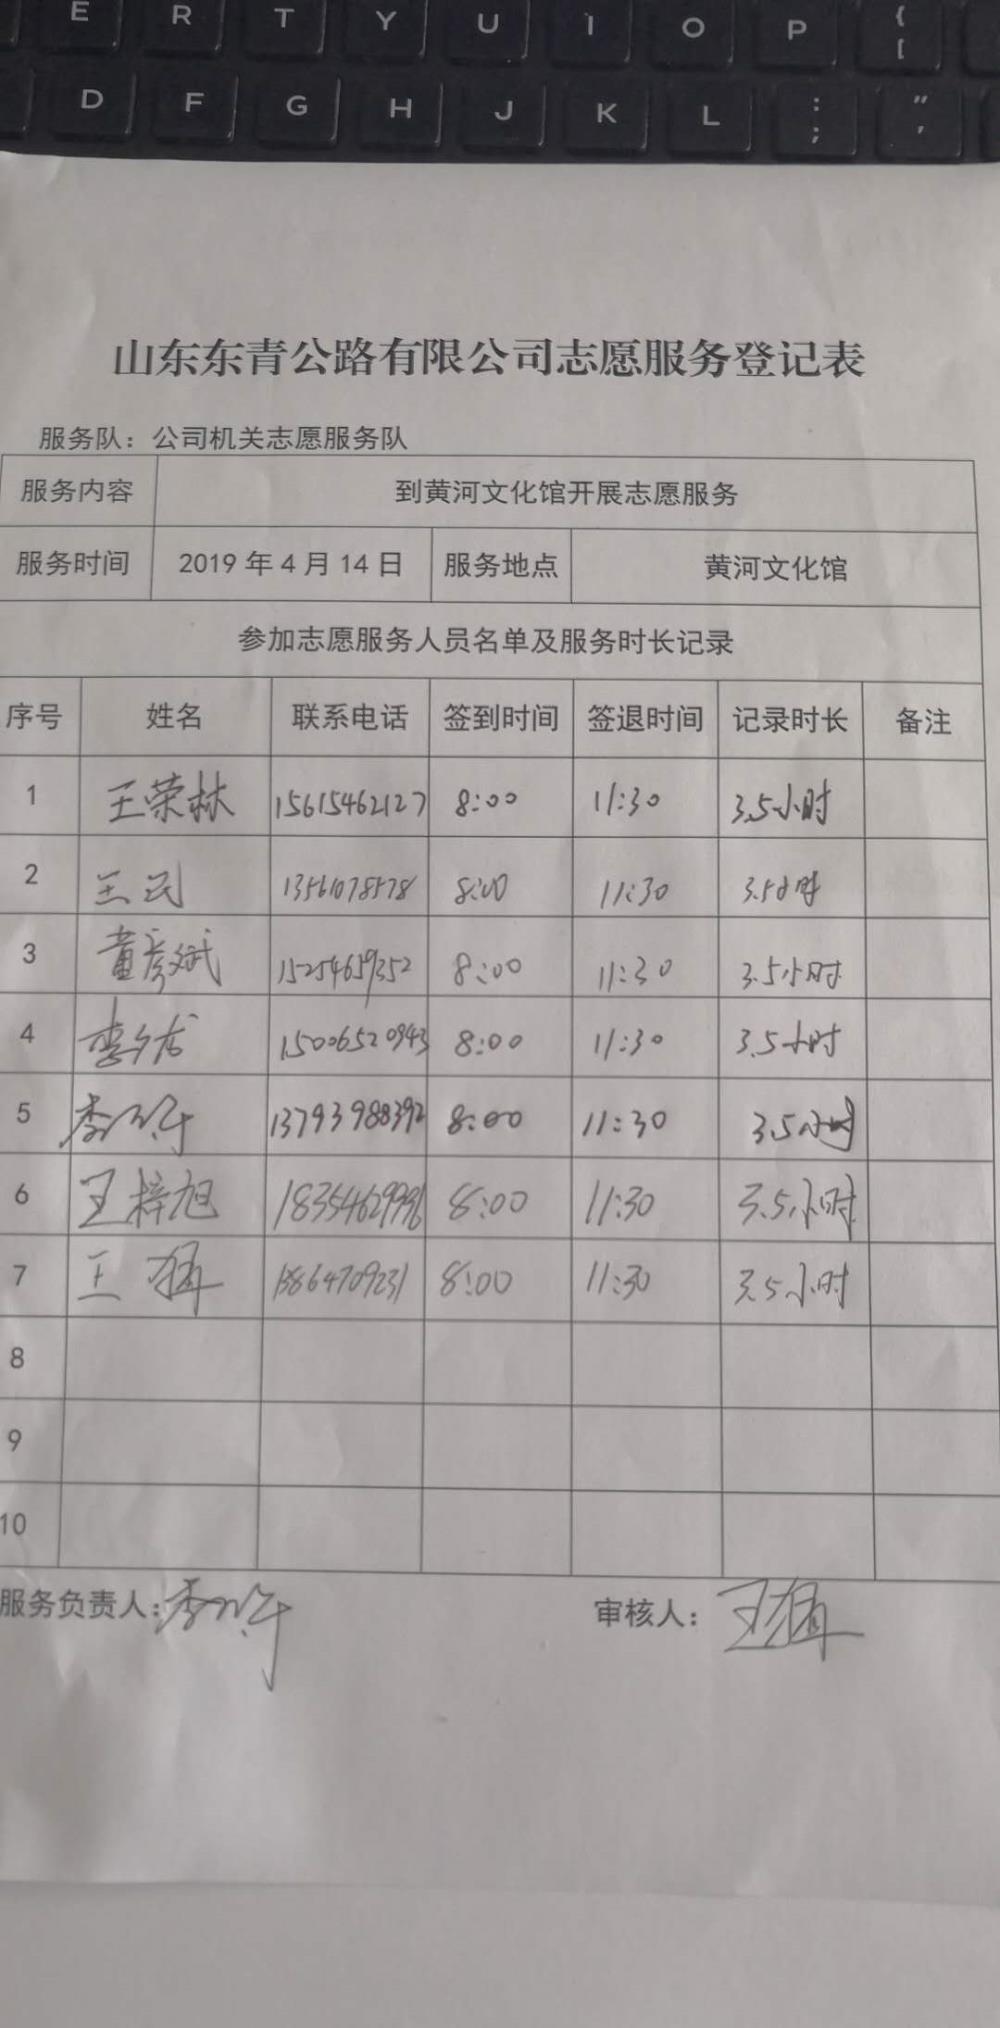 E R T Y U I O P { [
D F G H J K L : ; " '
山东东青公路有限公司志愿服务登记表
服务队：公司机关志愿服务队
服务内容 到黄河文化馆开展志愿服务
服务时间 2019年4月14日 服务地点 黄河文化馆
参加志愿服务人员名单及服务时长记录
序号 姓名 联系电话 签到时间 签退时间 记录时长 备注
1 王荣林 15615462127 8:00 11:30 3.5小时
2 王民 13561078578 8:00 11:30 3.5小时
3 董彦斌 15254659352 8:00 11:30 3.5小时
4 15006520943 8:00 11:30 3.5小时
5 13793988392 8:00 11:30 3.5小时
6 王梓旭 8:00 11:30 3.5小时
7 王 8:00 11:30 3.5小时
8
9
10
服务负责人： 审核人：